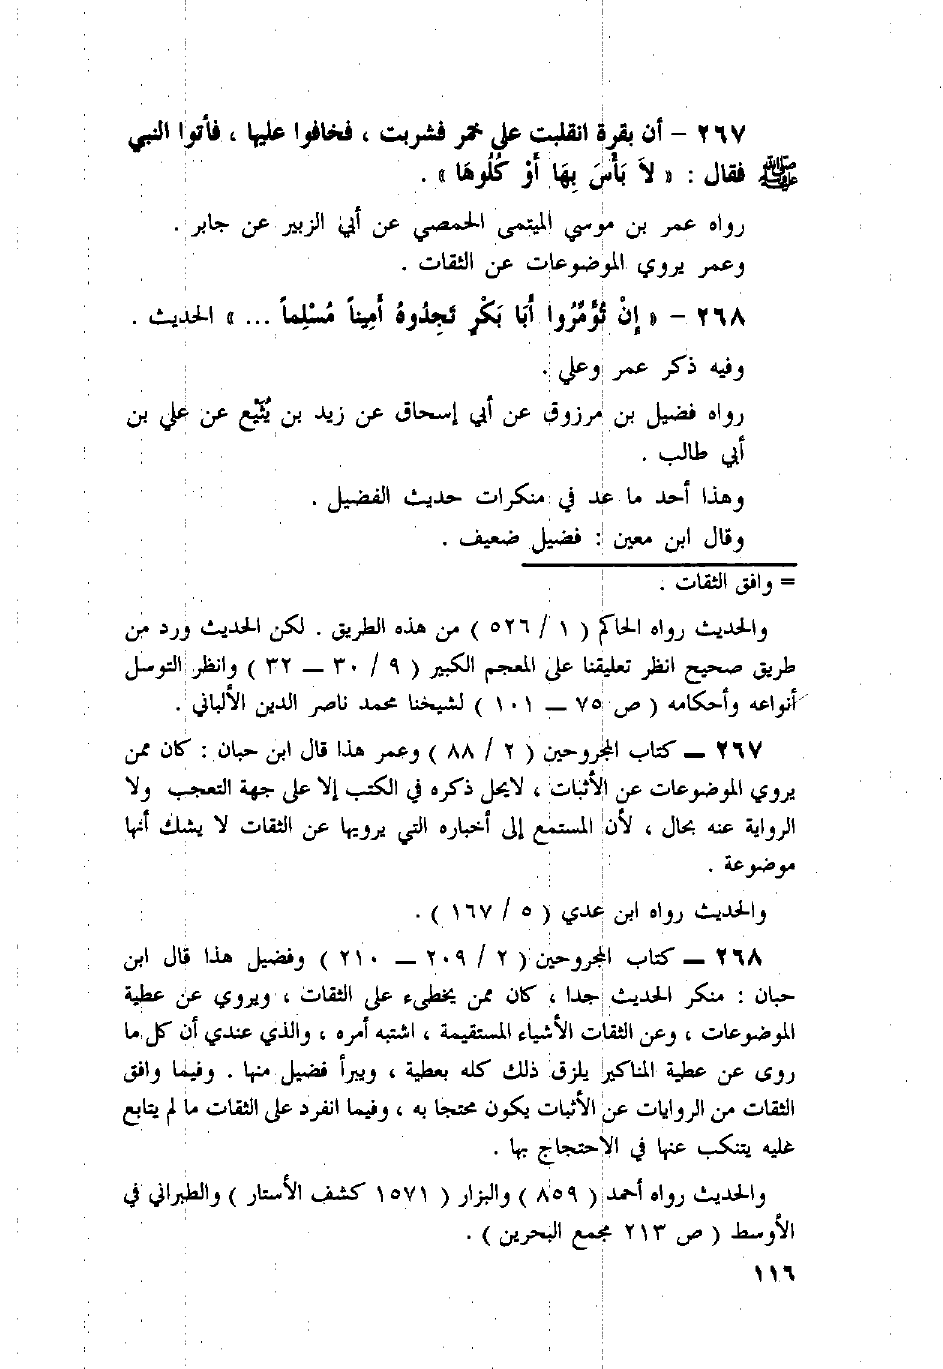 ٢٦٧ – أن بقرة انقلبت على خمر فشربت ، فخافوا عليها ، فأتوا النبي
ﷺ فقال : « لاَ بَأْسَ بِهَا أَوْ كُلُوهَا » .
رواه عمر بن موسي الميتمى الحمصي عن أبي الزبير عن جابر .
وعمر يروي الموضوعات عن الثقات .
٢٦٨ – « إِنْ تُؤَمِّرُوا أَبَا بَكْرٍ تَجِدُوهُ أَمِيناً مُسْلِماً ... » الحديث .
وفيه ذكر عمر وعلي .
رواه فضيل بن مرزوق عن أبي إسحاق عن زيد بن يُثَيْع عن علي بن
أبي طالب .
وهذا أحد ما عد في منكرات حديث الفضيل .
وقال ابن معين : فضيل ضعيف .
= وافق الثقات .
والحديث رواه الحاكم ( ١ / ٥٢٦ ) من هذه الطريق . لكن الحديث ورد من
طريق صحيح انظر تعليقنا على المعجم الكبير ( ٩ / ٣٠ — ٣٢ ) وانظر التوسل
أنواعه وأحكامه ( ص ٧٥ — ١٠١ ) لشيخنا محمد ناصر الدين الألباني .
٢٦٧ — كتاب المجروحين ( ٢ / ٨٨ ) وعمر هذا قال ابن حبان : كان ممن
يروي الموضوعات عن الأثبات ، لايحل ذكره في الكتب إلا على جهة التعجب ولا
الرواية عنه بحال ، لأن المستمع إلى أخباره التي يرويها عن الثقات لا يشك أنها
موضوعة .
والحديث رواه ابن عدي ( ٥ / ١٦٧ ) .
٢٦٨ — كتاب المجروحين ( ٢ / ٢٠٩ — ٢١٠ ) وفضيل هذا قال ابن
حبان : منكر الحديث جدا ، كان ممن يخطىء على الثقات ، ويروي عن عطية
الموضوعات ، وعن الثقات الأشياء المستقيمة ، اشتبه أمره ، والذي عندي أن كل ما
روى عن عطية المناكير يلزق ذلك كله بعطية ، ويبرأ فضيل منها . وفيما وافق
الثقات من الروايات عن الأثبات يكون محتجا به ، وفيما انفرد على الثقات ما لم يتابع
عليه يتنكب عنها في الاحتجاج بها .
والحديث رواه أحمد ( ٨٥٩ ) والبزار ( ١٥٧١ كشف الأستار ) والطبراني في
الأوسط ( ص ٢١٣ مجمع البحرين ) .
١١٦